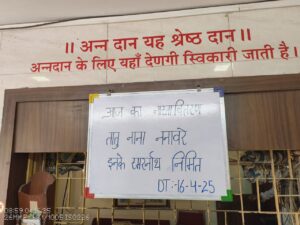 ॥ अन्न दान यह श्रेष्ठ दान ॥
अन्नदान के लिए यहाँ देणगी स्विकारी जाती है।
आज का
तातु नाना ननावरे
इनके स्मरर्नाथ निमित
DT:-16-4-25